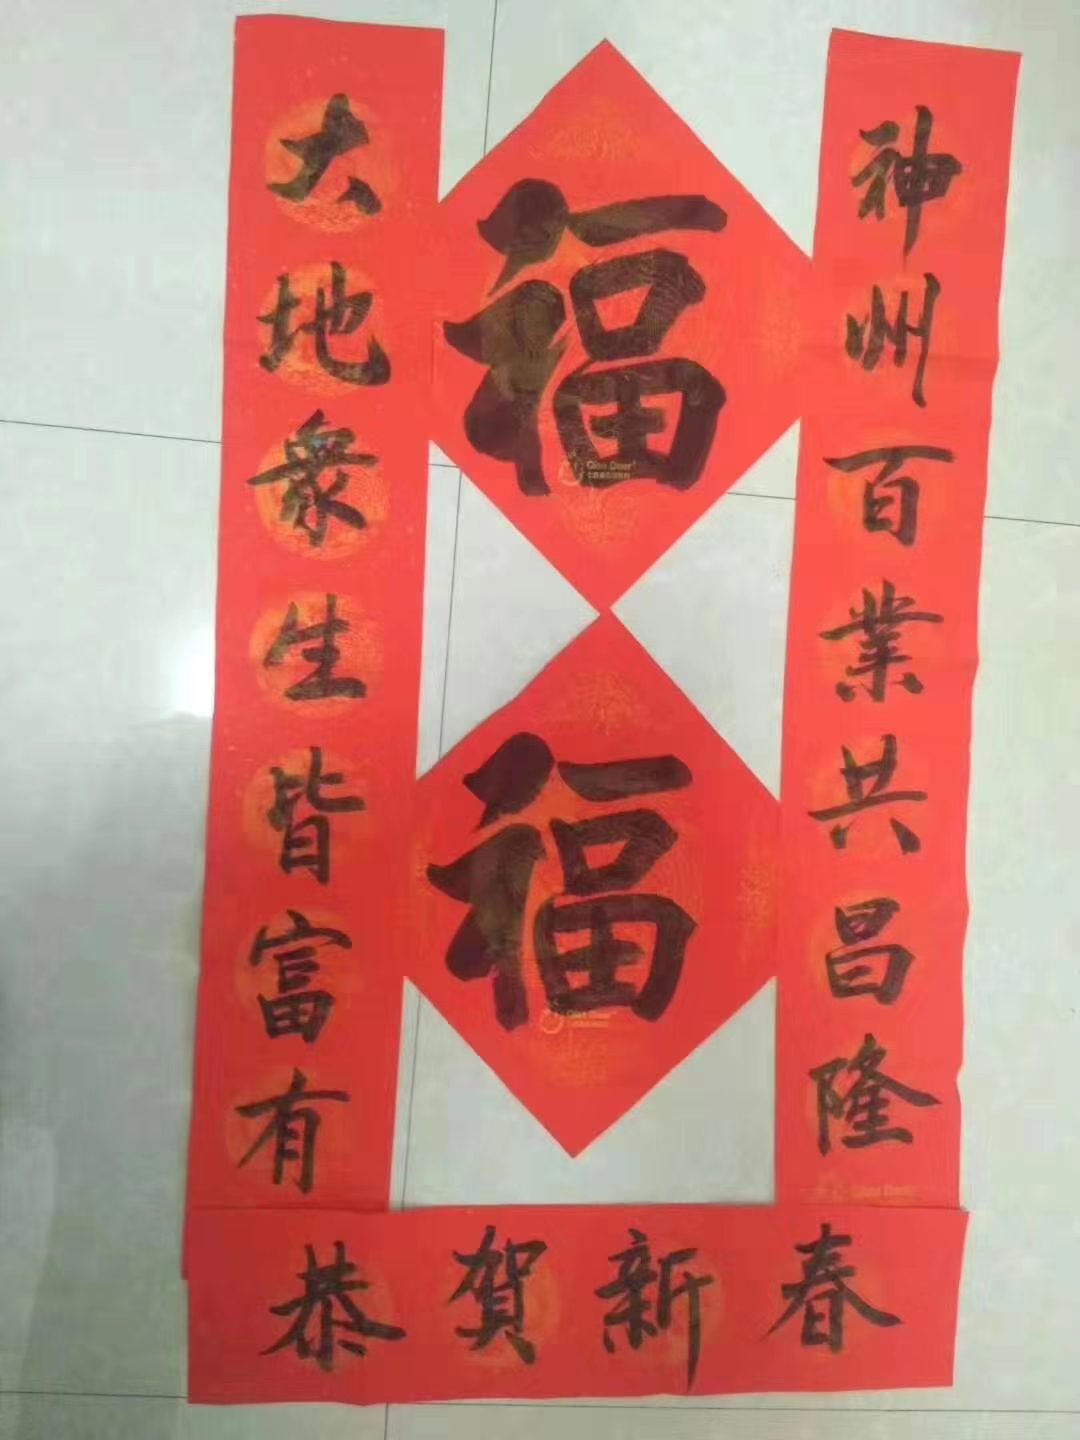 神州百業共昌隆
大地衆生皆富有
福
福
恭賀新春
Qiao Deer
Qiao Deer